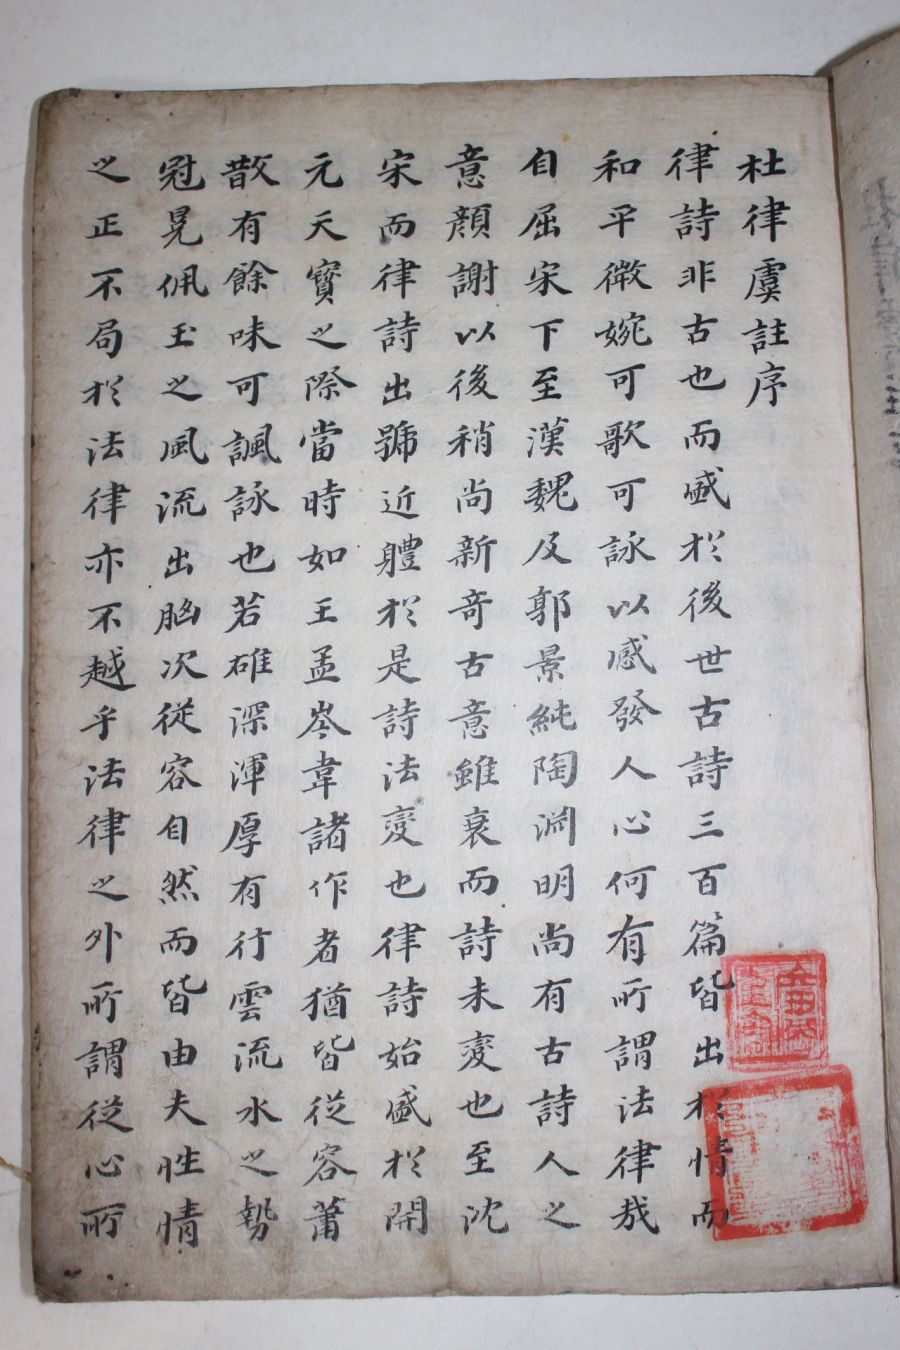 杜律虞註序
律詩非古也而盛於後世古詩三百篇皆出於情而
和平微婉可歌可詠以感發人心何有所謂法律㦲
自屈宋下至漢魏及郭景純陶渊明尚有古詩人之
意顔謝以後稍尚新竒古意雖衰而詩未變也至沈
宋而律詩出號近軆於是詩法變也律詩始盛於開
元天寳之際當時如王孟岑韋諸作者猶皆從容蕭
散有餘味可諷詠也若雄深渾厚有行雲流水之勢
冠冕佩玉之風流出胸次從容自然而皆由夫性情
之正不局於法律亦不越乎法律之外所謂從心所